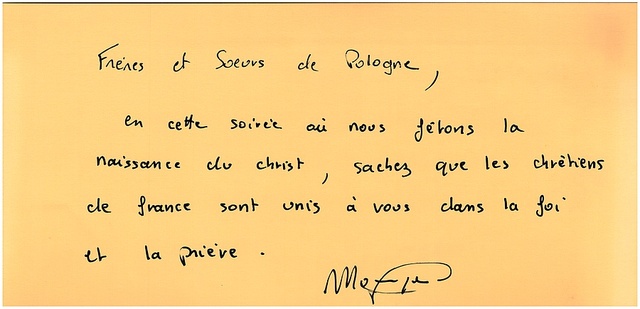 Frères et Soeurs de Pologne,
en cette soirée où nous fêtons la
naissance du christ, sachez que les chrétiens
de france sont unis à vous dans la foi
et la prière.